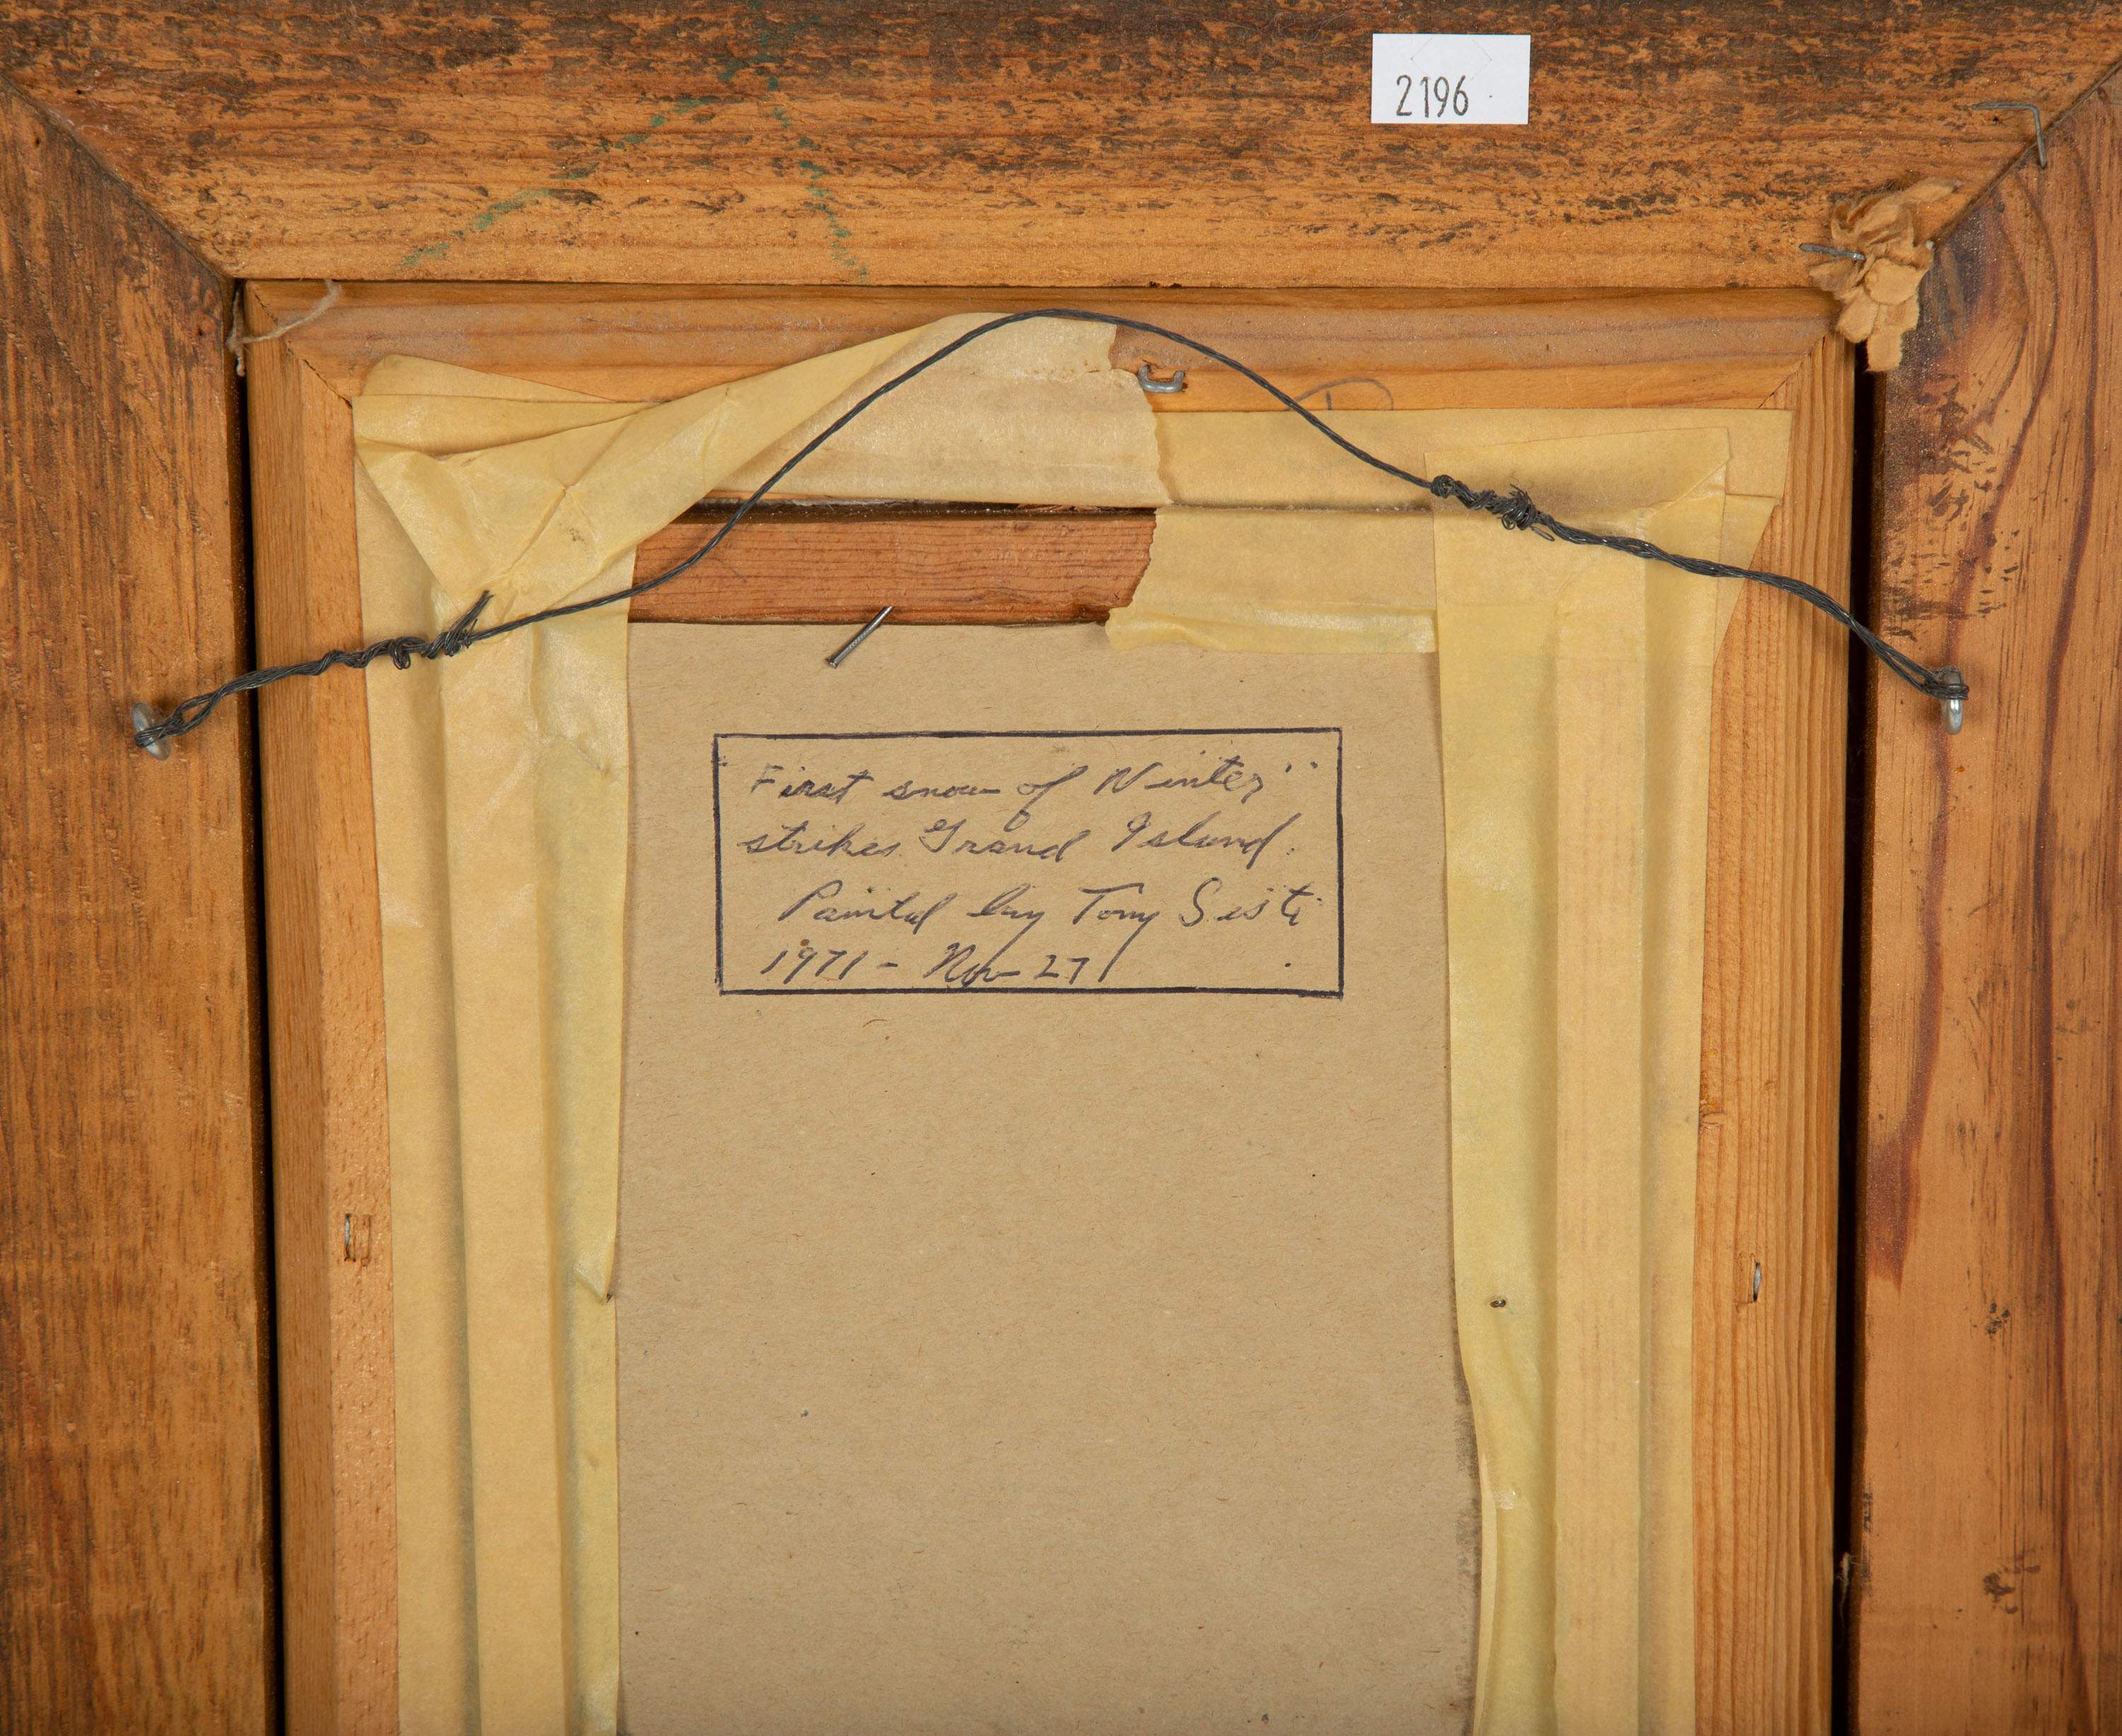 2196
"First snow of Winter"
strikes Grand Island.
Painted by Tony Sisti
1971 - Nov 27